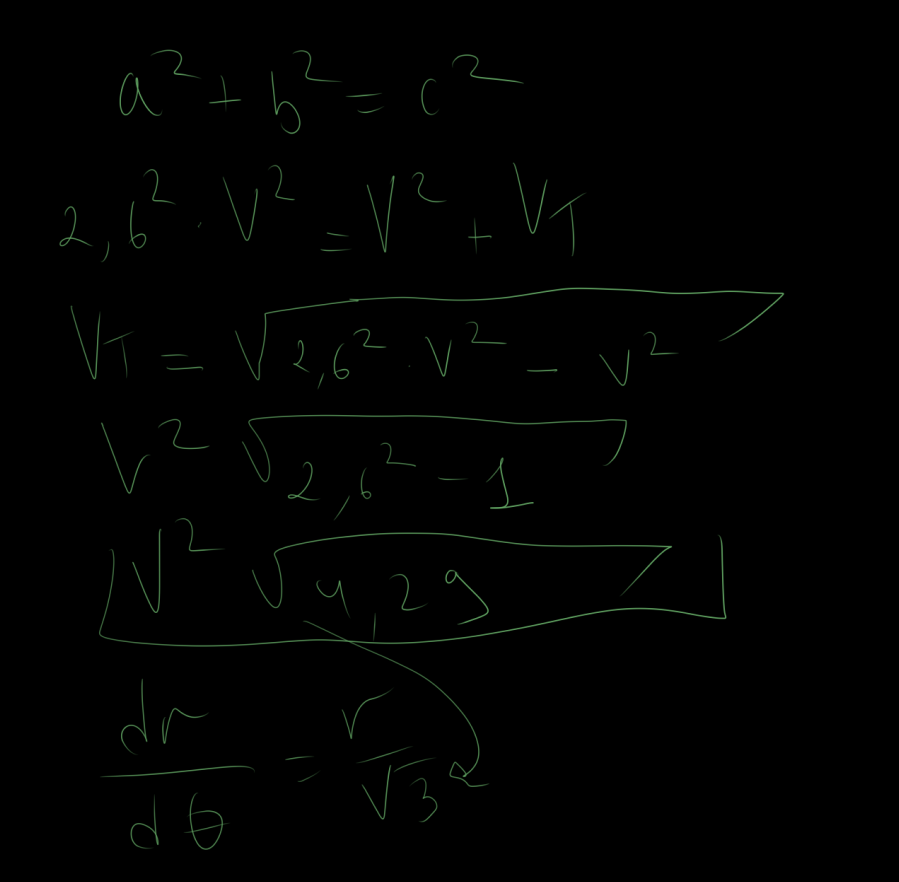 a² + b² = c²
2,6² · V² = V² + V_T
V_T = √(2,6² · V² − V²)
V² √(2,6² − 1)
V² √(4,29)
dr/dθ = r/√3